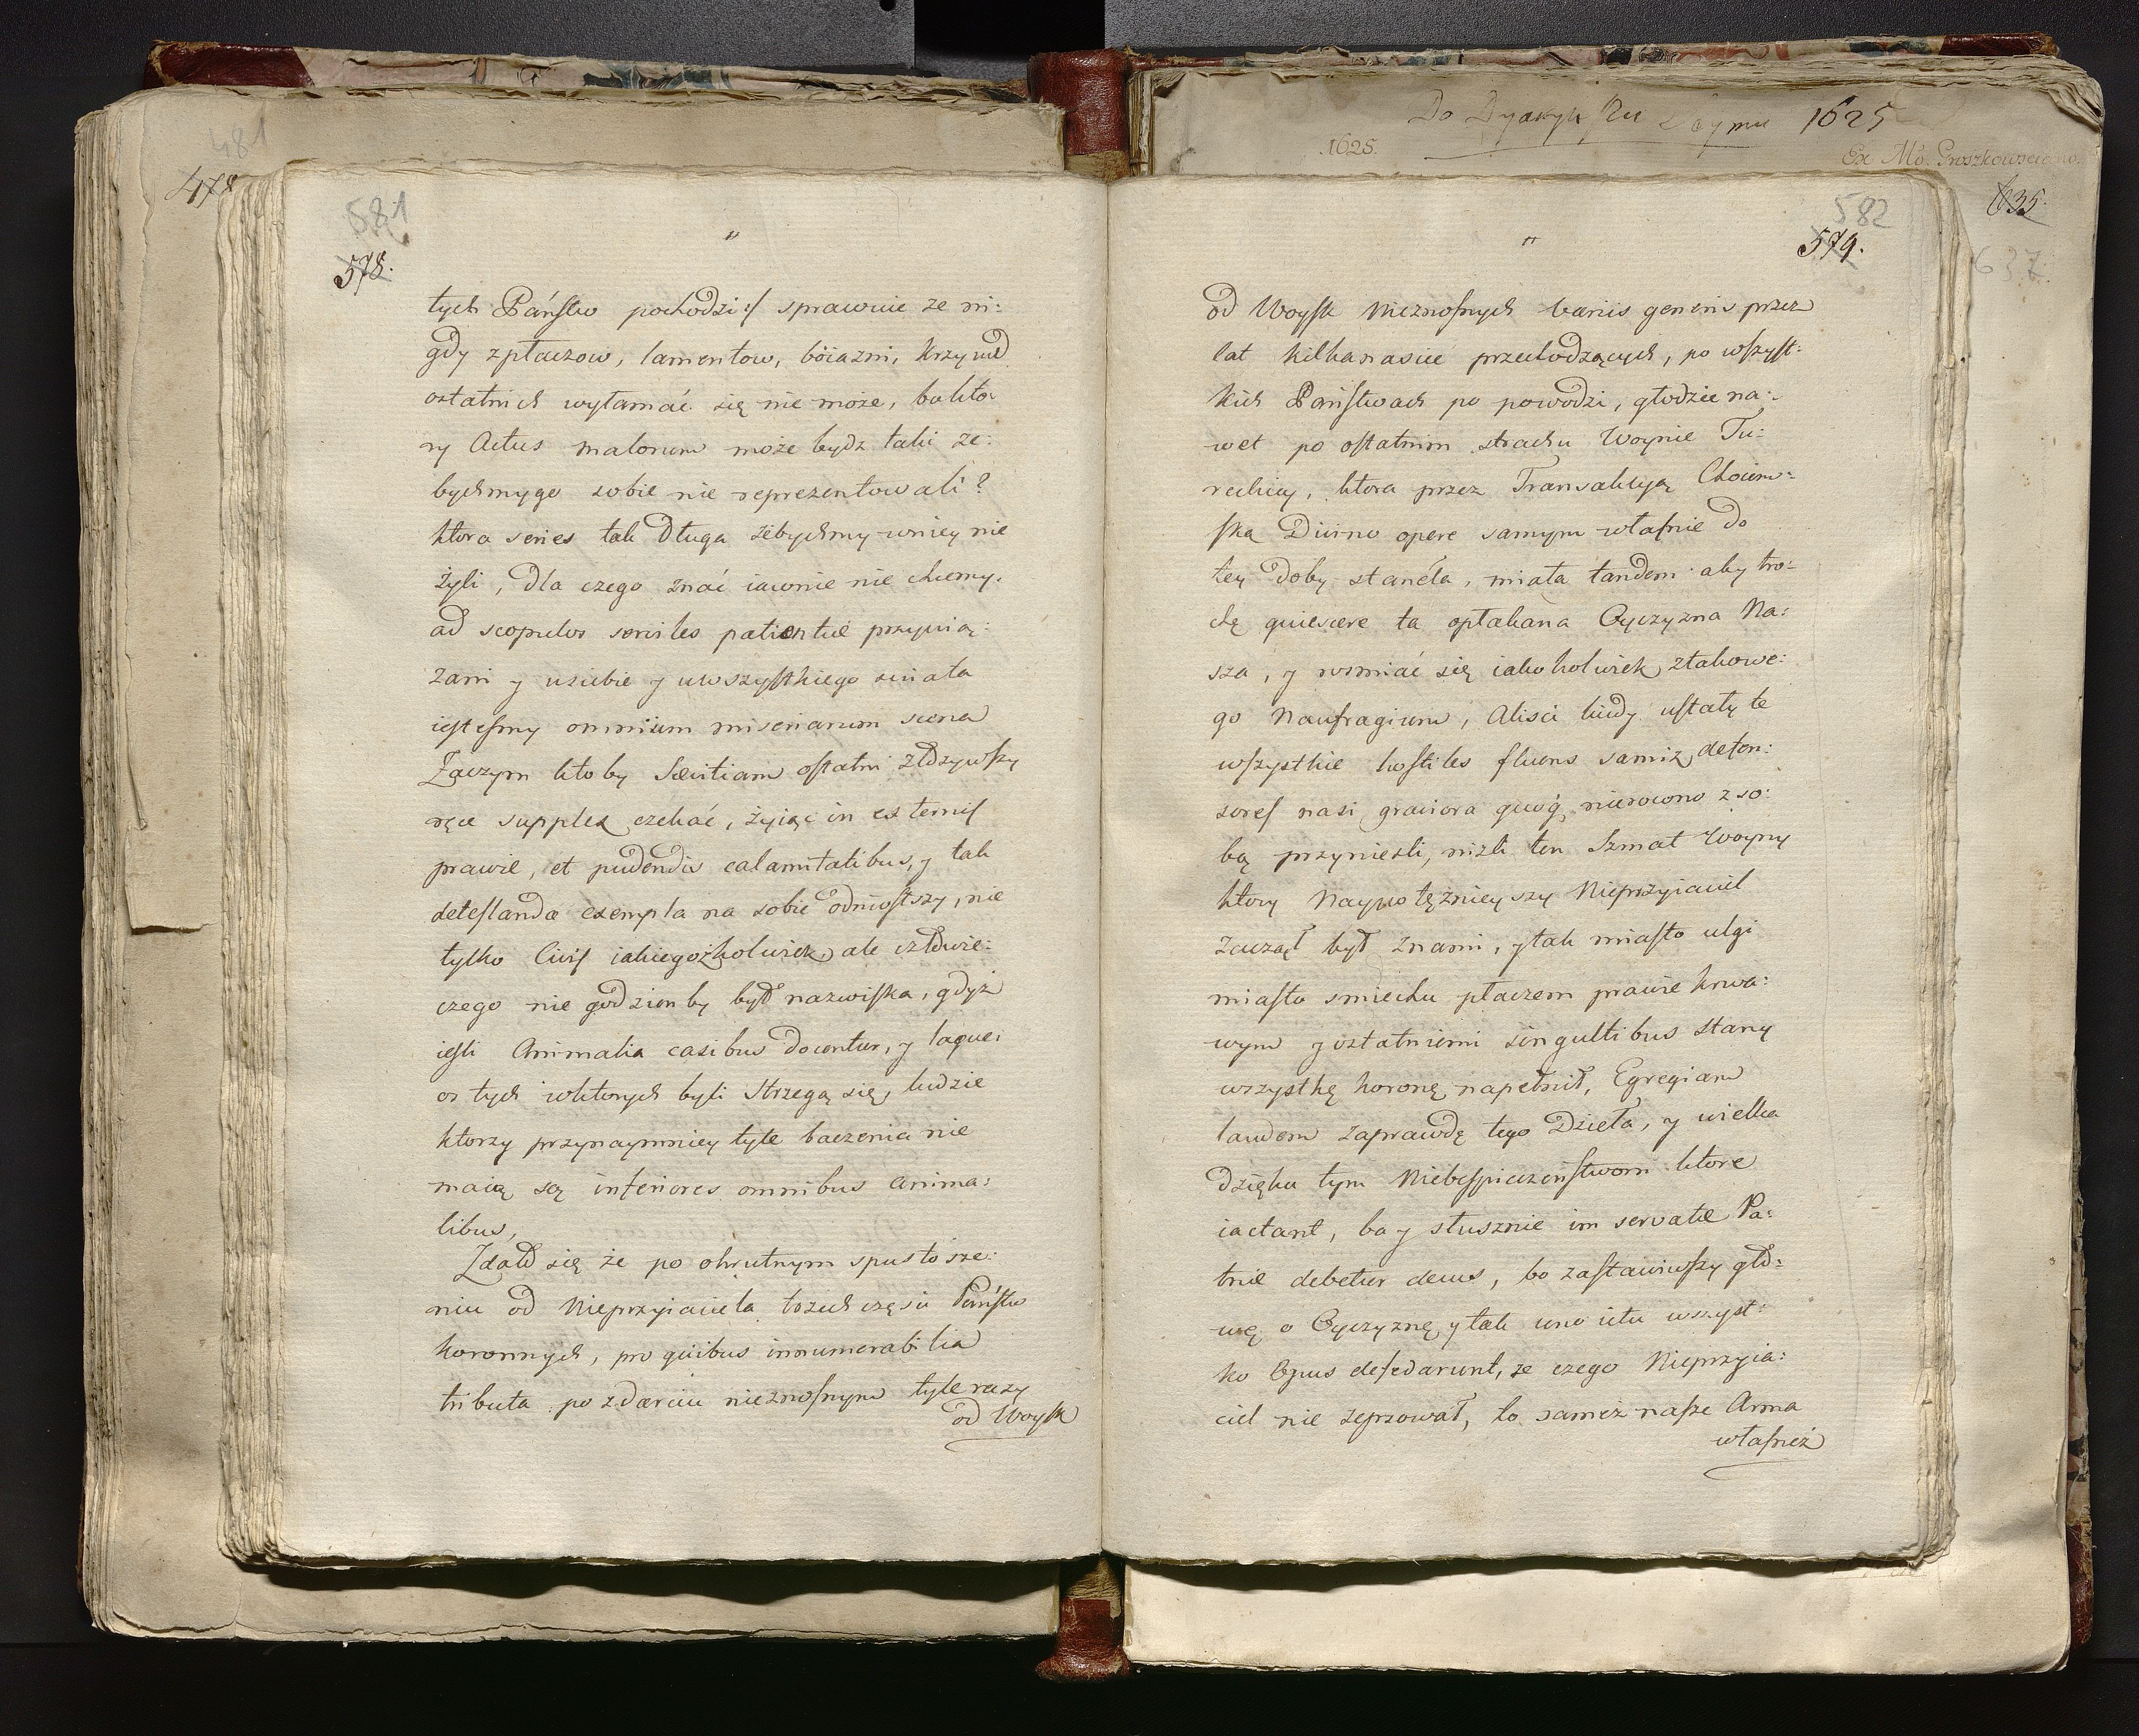 481
478
581
578.
"
tych Państw pochodzi:/ sprawuie ze ni:
gdy zpłaczow, lamentow, boiazni, krzywd
ostatnich wyłamać się nie może, bo kto:
ry Actus malorum może bydz taki ze:
bychmy go sobie nie reprezentowali?
ktora series tak długa żebychmy wniey nie
żyli, dla czego znać iawnie nie chcemy.
ad scopulos seruiles patientiæ przywią:
zani y usiebie y uwszystkiego swiata
iestesmy omnium miseriarum scena
Zaczym ktoby Sæuitiam ostatni złożywszy
ręce supplex czekać, żyiąc in externis
prawie, et pudendis calamitatibus, y tak
detestanda exempla na sobie odniosłszy, nie
tylko Ciuis iakiegożkolwiek, ale człowie:
czego nie godzien by był nazwiska, gdyż
iesli Animalia casibus docentur, y laque:
os tych wktorych byli strzegą się, ludzie
ktorzy przynaymniey tyle baczenia nie
maią są inferiores omnibus anima:
libus,
Zdało się że po okrutnym spustosze:
niu od Nieprzyiaciela trzech części Państw
koronnych, pro quibus innumerabilia
tributa po zdarciu nieznosnym tyle razy
od Woysk
Do Dyaryuszu Seymu 1625
1625.
Ex Mo. Proszkowsciano.
635.
637.
582
579.
"
od Woysk nieznosnych variis generis przez
lat kilkanascie przechodzących, po wszyst:
kich Państwach po powodzi, głodzie na:
wet po ostatnim strachu Woynie Tu:
reckiey, ktora przez Transakcyą Chocim:
ską Diuino opere samym własnie do
tey doby stanęła, miała tandem aby tro:
chę quiescere ta opłakana Oyczyzna Na:
sza, y rozmiać się iakokolwiek ztakowe:
go Naufragium, Alisci kiedy ustały te
wszystkie hostiles fluens samiż defen:
sores nasi grauiora quoq. nierowno z so:
bą przyniesli, nizli ten Szmat Woyny
ktory Naypotężnieyszy Nieprzyiaciel
zaczął był znami, y tak miasto ulgi
miasto smiechu płaczem prawie krwa:
wym y ostatniemi singultibus stany
wszystkę koronę napełnił, Egregiam
laudem zaprawdę tego Dzieła, y wielka
dzięka tym Niebespieczeństwom ktore
iactant, ba y słusznie im seruatæ Pa:
triæ debetur decus, bo zastawiwszy gło:
wę o Oyczyznę, y tak uno ictu wszyst:
ko Opus defedarunt, że czego Nieprzyia:
ciel nie zepsował, to sameż nasze Arma
własnież